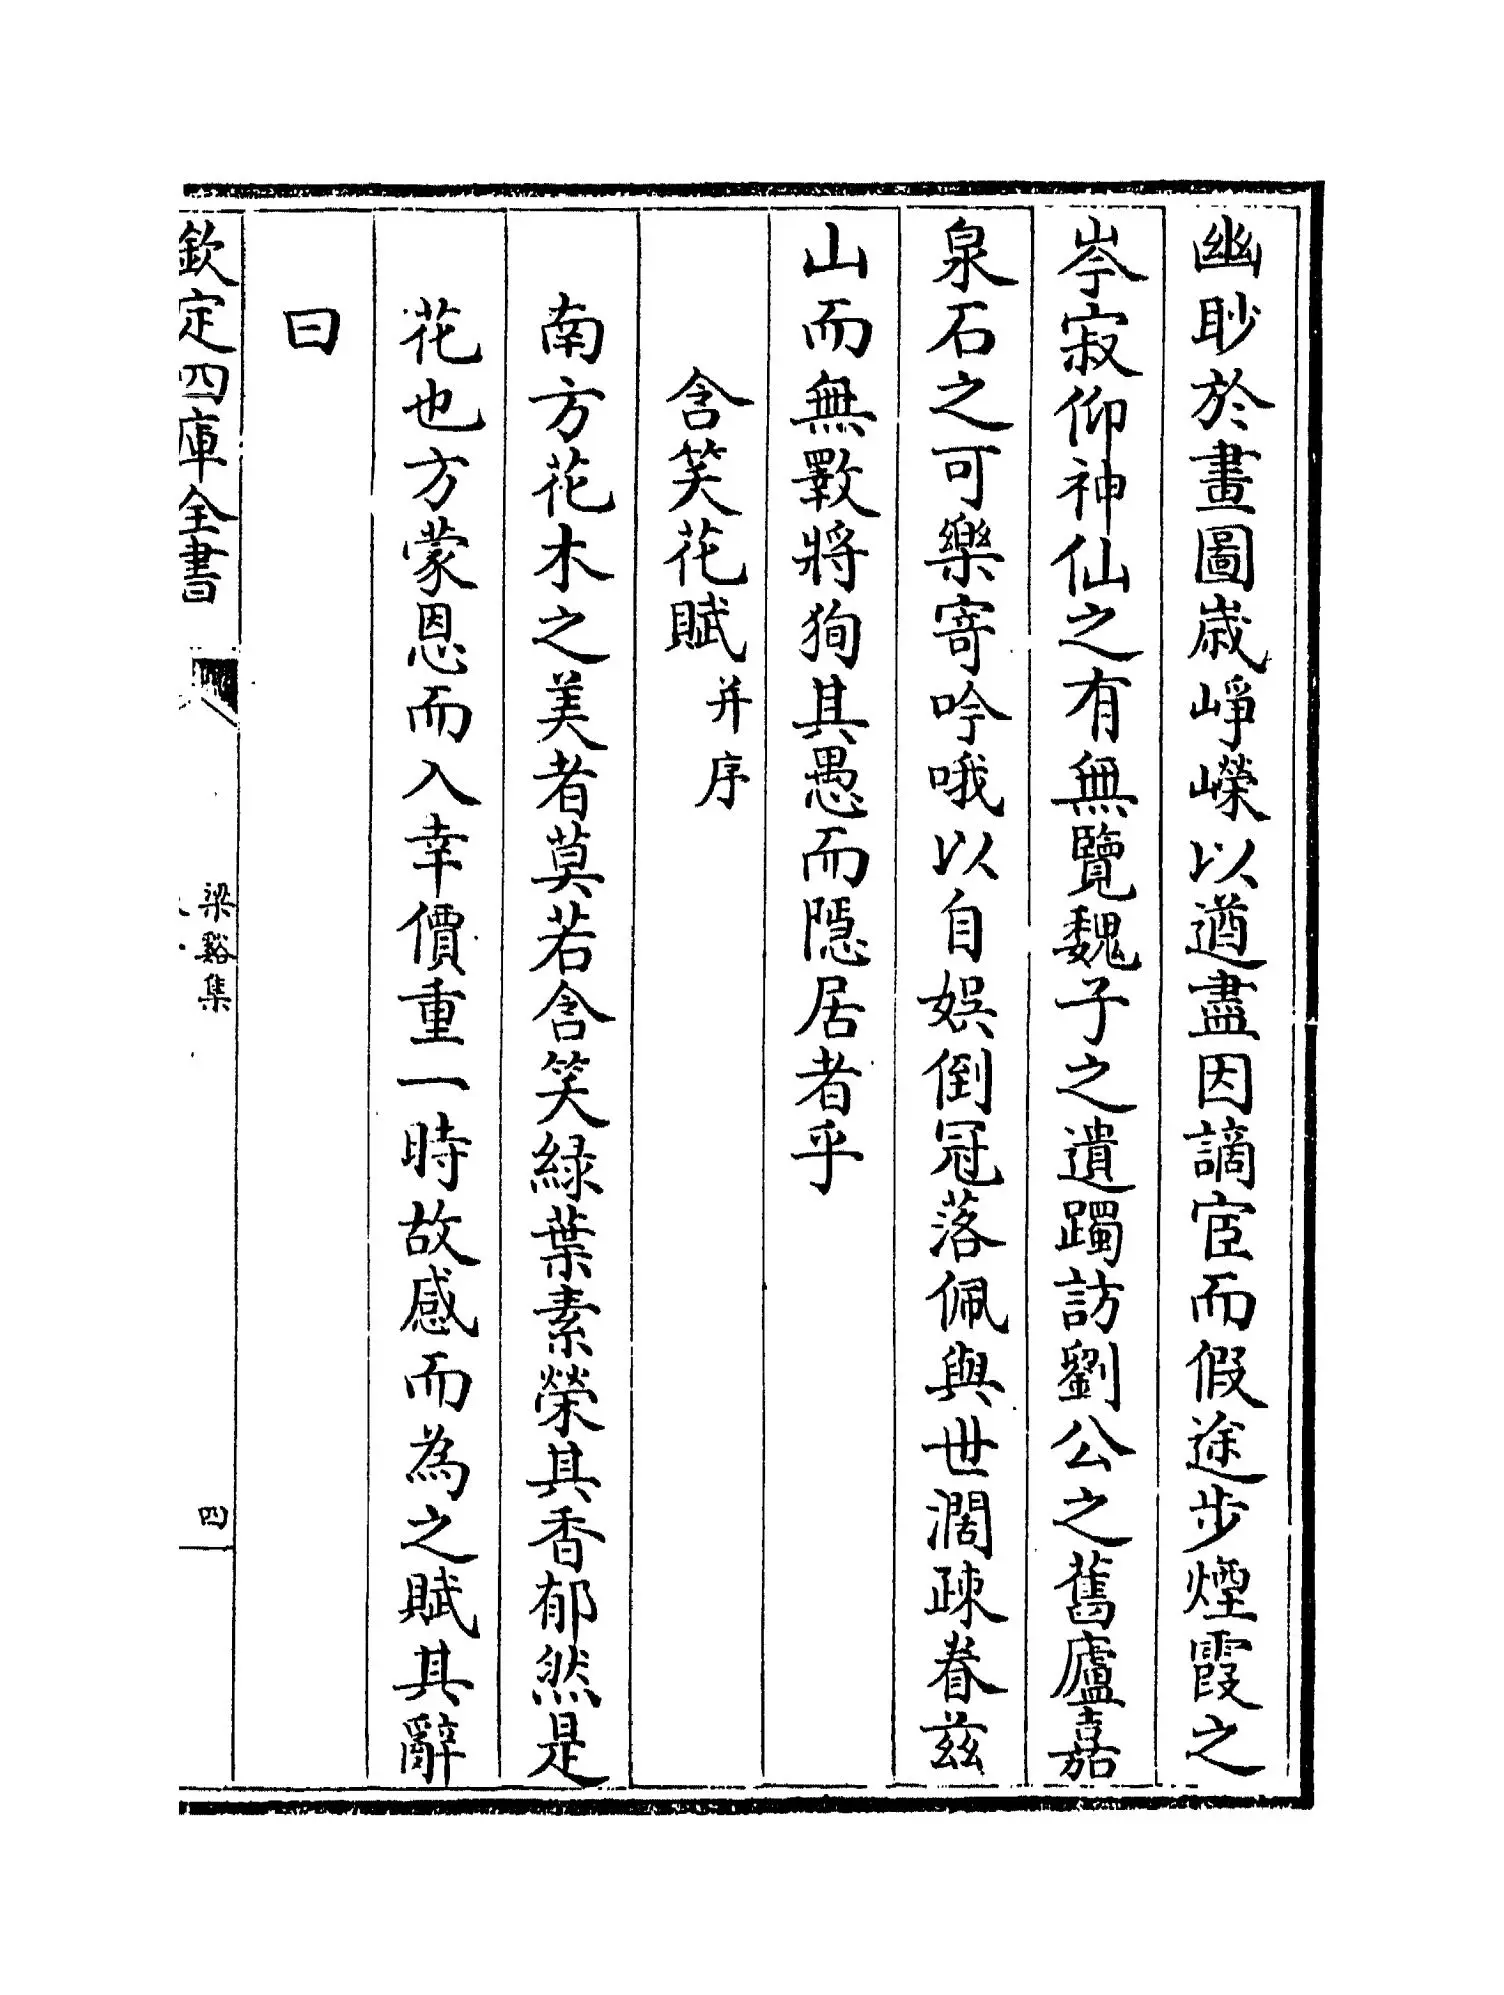 幽眇於畫圖歲崢嶸以遒盡因謫宦而假途步煙霞之
岑寂仰神仙之有無覽魏子之遺躅訪劉公之舊廬嘉
泉石之可樂寄吟哦以自娯倒冠落佩與世濶疎眷茲
山而無斁將狥其愚而隠居者乎
含笑花賦并序
南方花木之美者莫若含笑緑葉素榮其香郁然是
花也方蒙恩而入幸價重一時故感而為之賦其辭
曰
欽定四庫全書
梁谿集
四